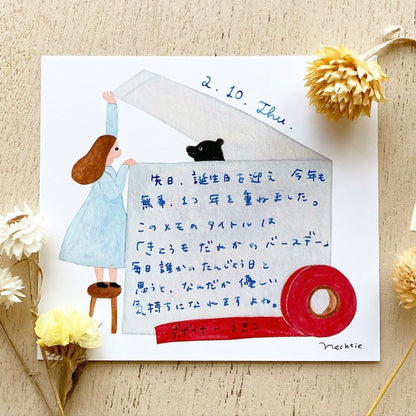 2.10. Thu.
先日、誕生日を迎え 今年も
無事、1つ年を重ねました。
このメモのタイトルは
「きょうもだれかのバースデー」
毎日誰かのたんじょう日と
思うと、なんだか優しい
気持ちになれますよね。
デザイナー つきこ
Necktie